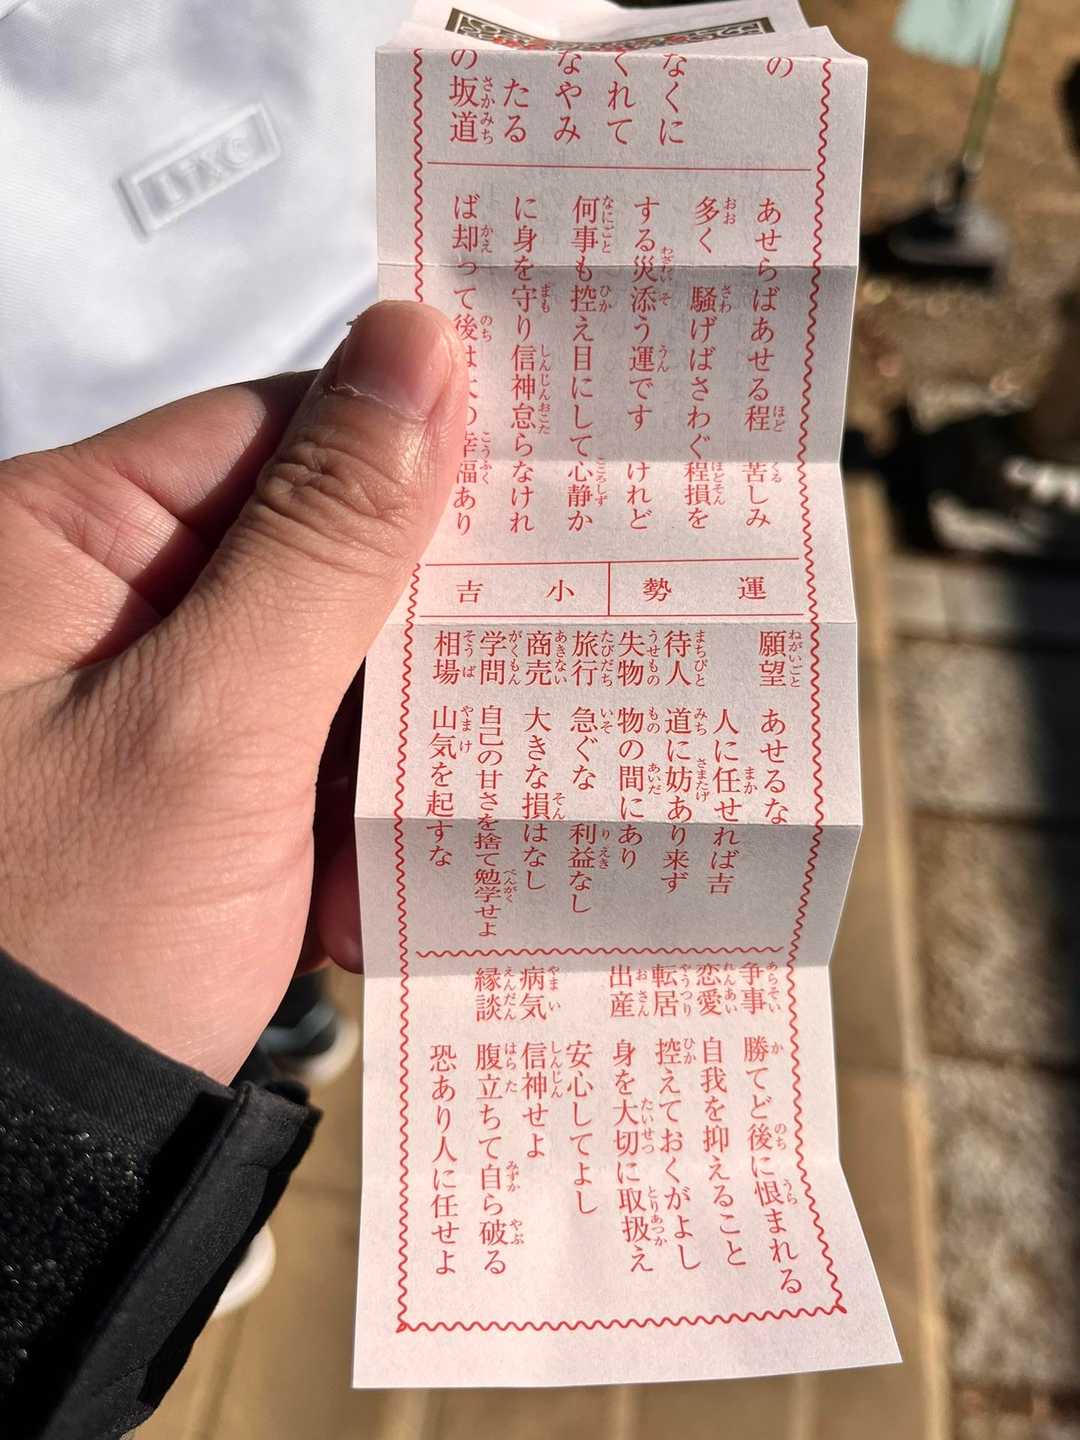 の
なくに
くれて
なやみ
たる
の坂道
あせらばあせる程苦しみ
多く 騒げばさわぐ程損を
する災添う運です けれど
何事も控え目にして心静か
に身を守り信神怠らなけれ
ば却って後は大の幸福あり
運勢 小吉
願望 あせるな
人に任せれば吉
待人 道に妨あり来ず
失物 物の間にあり
旅行 急ぐな 利益なし
商売 大きな損はなし
学問 自己の甘さを捨て勉学せよ
相場 山気を起すな
争事 勝てど後に恨まれる
恋愛 自我を抑えること
転居 控えておくがよし
出産 身を大切に取扱え
安心してよし
病気 信神せよ
縁談 腹立ちて自ら破る
恐あり人に任せよ